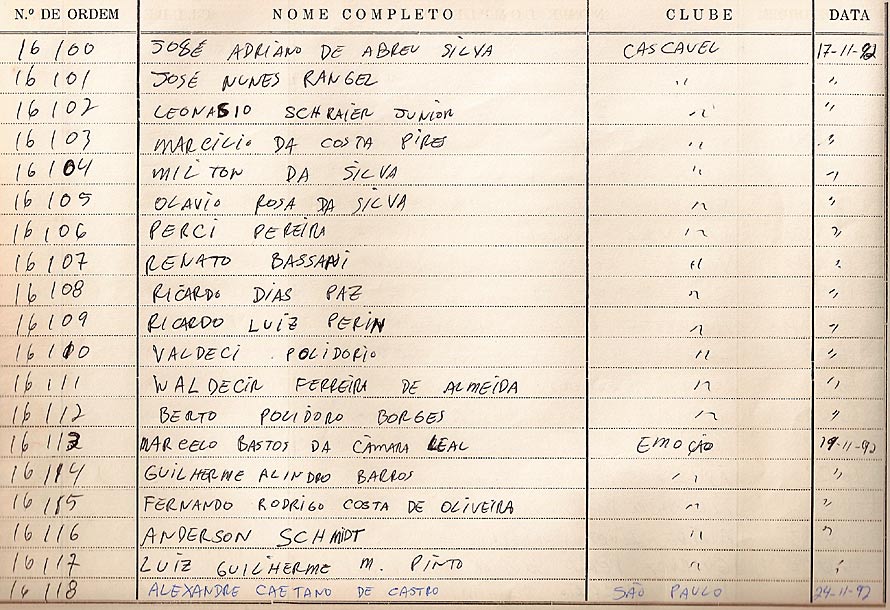 N.º DE ORDEM NOME COMPLETO CLUBE DATA
16 100 JOSÉ ADRIANO DE ABREU SILVA CASCAVEL 17-11-92
16 101 JOSÉ NUNES RANGEL " "
16 102 LEONASIO SCHRAIER JUNIOR " "
16 103 MARCILIO DA COSTA PIRES " "
16 104 MILTON DA SILVA " "
16 105 OLAVIO ROSA DA SILVA " "
16 106 PERCI PEREIRA " "
16 107 RENATO BASSANI " "
16 108 RICARDO DIAS PAZ " "
16 109 RICARDO LUIZ PERIN " "
16 110 VALDECI POLIDORIO " "
16 111 WALDECIR FERREIRA DE ALMEIDA " "
16 112 BERTO POLIDORO BORGES " "
16 113 MARCELO BASTOS DA CÂMARA LEAL EMOÇÃO 19-11-92
16 114 GUILHERME ALINDRO BARROS " "
16 115 FERNANDO RODRIGO COSTA DE OLIVEIRA " "
16 116 ANDERSON SCHMIDT " "
16 117 LUIZ GUILHERME M. PINTO " "
16 118 ALEXANDRE CAETANO DE CASTRO SÃO PAULO 24-11-92